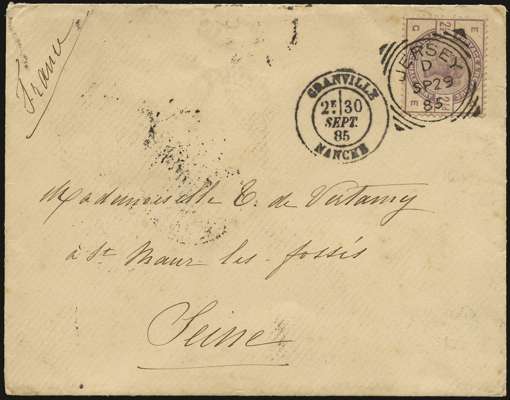 France
GRANVILLE
2E 30
SEPT.
85
MANCHE
JERSEY
D
SP 29
85
E
C
E
Mademoiselle E. de Vertamy
à St Maur-les-fossés
Seine